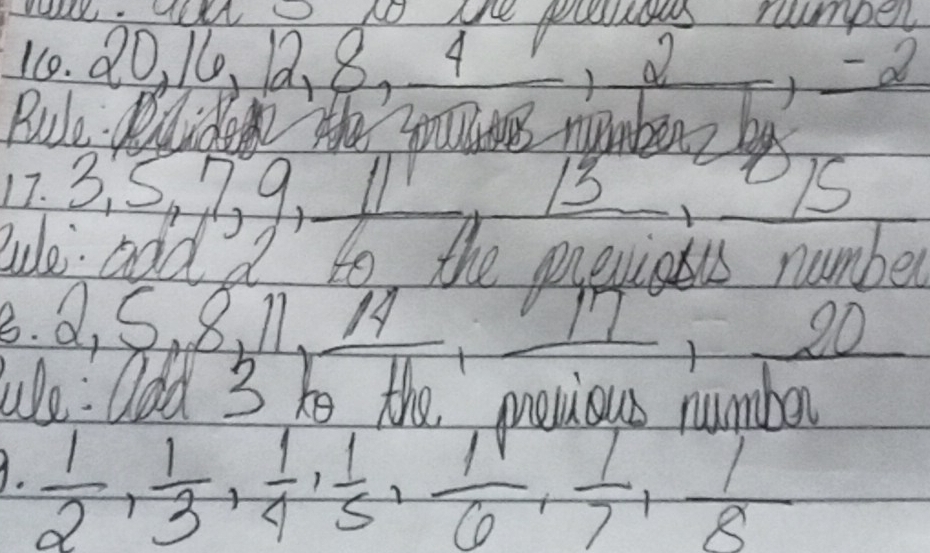 Rule: add 3 to the previous number
16. 20, 16, 12, 8, 4, 2, -2
Rule: Divide the previous number by
17. 3, 5, 7, 9, 11, 13, 15
Rule: add 2 to the previous number
8. 2, 5, 8, 11, 14, 17, 20
Rule: Add 3 to the previous number
9. 1/2, 1/3, 1/4, 1/5, 1/6, 1/7, 1/8